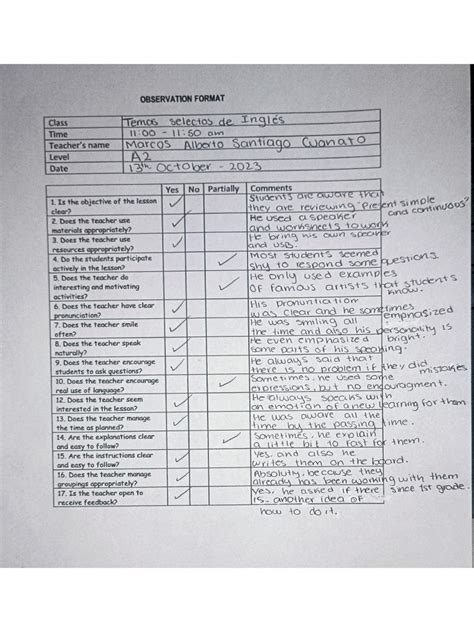 OBSERVATION FORMAT
Class Temas selectos de Inglés
Time 11:00 - 11:50 am
Teacher's name Marcos Alberto Santiago Cuanalo
Level A2
Date 13th October - 2023
Yes No Partially Comments
1. Is the objective of the lesson clear? ✓ Students are aware that they are reviewing "Present simple and continuous"
2. Does the teacher use materials appropriately? ✓ He used a speaker and worksheets to work
3. Does the teacher use resources appropriately? ✓ He bring his own speaker and USB.
4. Do the students participate actively in the lesson? ✓ Most students seemed shy to respond some questions.
5. Does the teacher do interesting and motivating activities? ✓ He only used examples of famous artists that students know.
6. Does the teacher have clear pronunciation? ✓ His pronuntiation was clear and he sometimes emphasized
7. Does the teacher smile often? ✓ He was smiling all the time and also his personality is bright.
8. Does the teacher speak naturally? ✓ He even emphasized some parts of his speaking.
9. Does the teacher encourage students to ask questions? ✓ He always said that there is no problem if they did mistakes
10. Does the teacher encourage real use of language? ✓ Sometimes, he used some expressions, but no encouragment.
12. Does the teacher seem interested in the lesson? ✓ He always speaks with an emotion of a new learning for them
13. Does the teacher manage the time as planned? ✓ He was aware all the time by the passing time.
14. Are the explanations clear and easy to follow? ✓ Sometimes, he explain a little bit to fast for them.
15. Are the instructions clear and easy to follow? ✓ Yes, and also he writes them on the board.
16. Does the teacher manage groupings appropriately? ✓ Absolutly, because they already has been working with them since 1st grade.
17. Is the teacher open to receive feedback? ✓ Yes, he asked if there is another idea of how to do it.